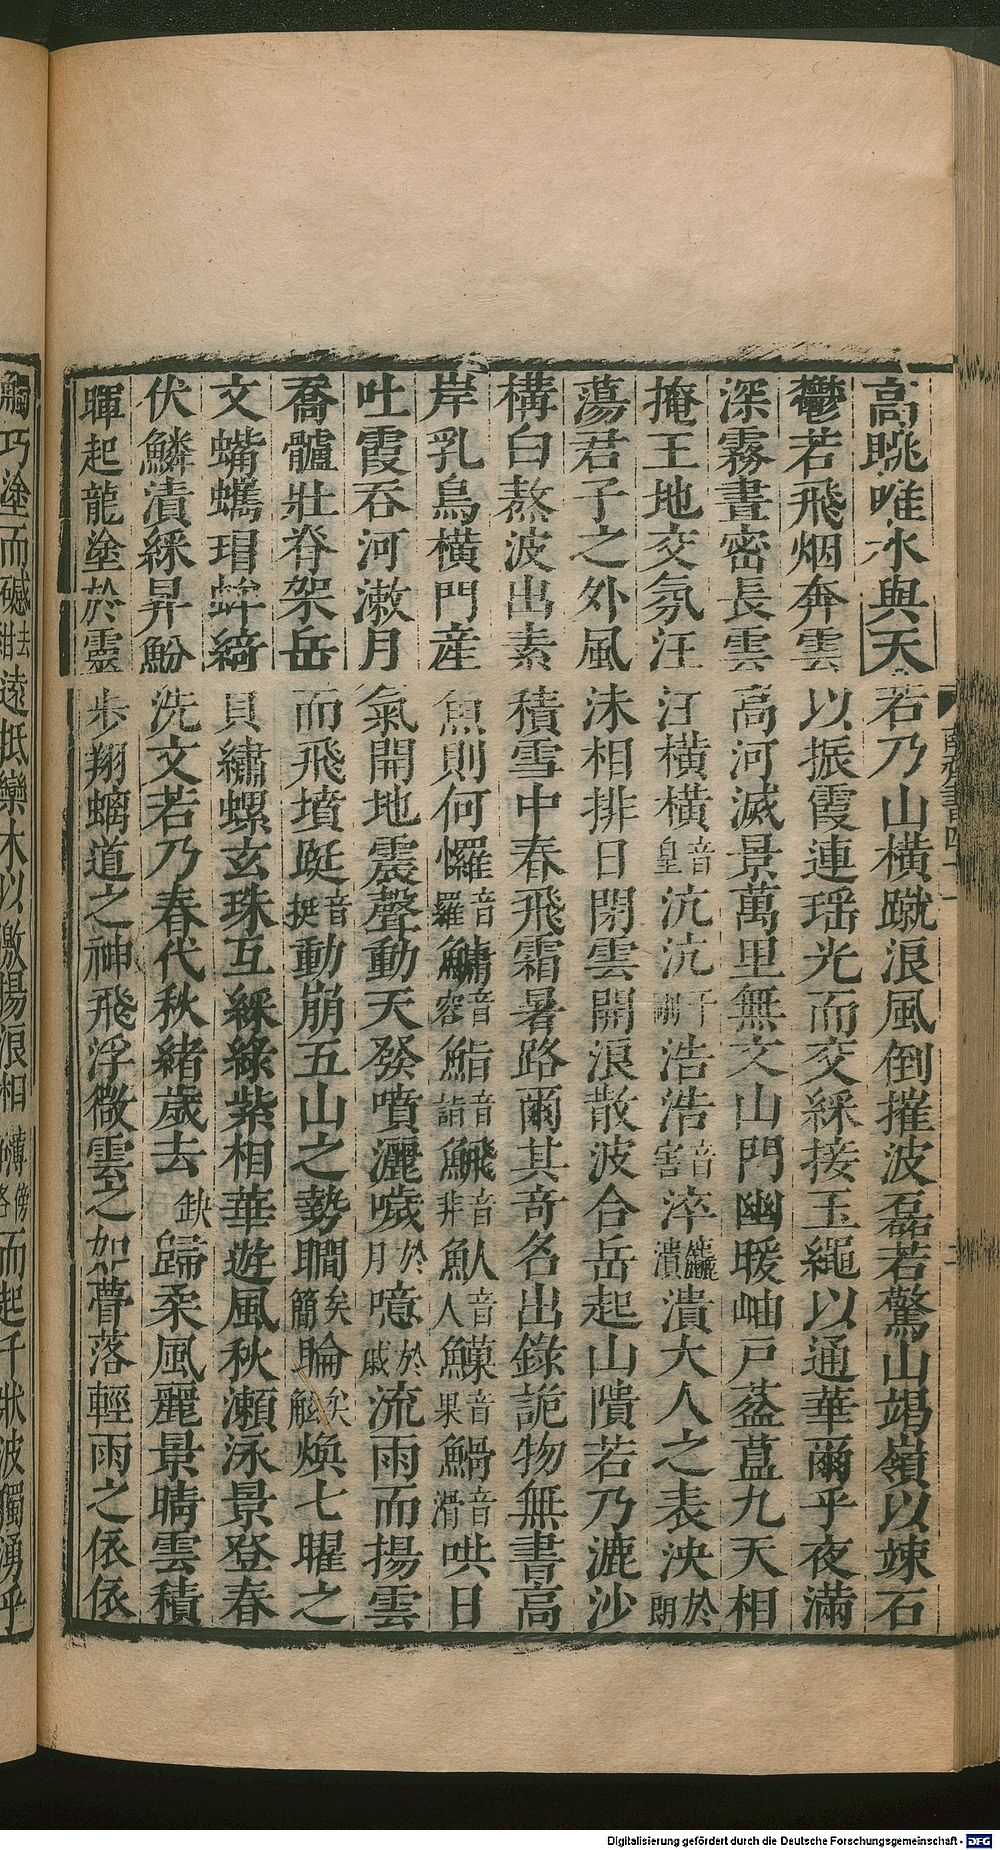 高眺唯水與天若乃山橫蹴浪風倒摧波磊若驚山竭嶺以竦石
鬱若飛烟奔雲以振霞連瑶光而交綵接玉繩以通華爾乎夜滿
深霧晝密長雲高河滅景萬里無文山門幽暖岫戶葢蒀九天相
掩王地交氛汪汪橫橫音皇沆沆于剛浩浩音害淬潰大人之表泱於朗
蕩君子之外風沬相排日閉雲開浪散波合岳起山隤若乃漉沙
構白熬波出素積雪中春飛霜暑路爾其奇名出錄詭物無書高
岸乳鳥橫門産魚則何㦬音羅鱅音容鮨音詣䱐音非魜音人䱋音果䱻音滑哄日
吐霞吞河漱月氣開地震聲動天發噴灑噦於月噫於戚流雨而揚雲
喬髗壯脊架岳而飛墳䟫音挺動崩五山之勢瞷矣簡睔矣煥七曜之
文蟕蠵瑁蛑綺貝繡螺玄珠互綵綠紫相華遊風秋瀨泳景登春
伏鱗漬綵昇魵洗文若乃春代秋緒歲去缺歸柔風麗景晴雲積
暉起龍塗於靈步翔螭道之神飛浮微雲之如瞢落輕雨之依依
觸巧塗而礚紺去遠抵欒木以激揚浪相薄傍各而起千狀波獨湧乎
Digitalisierung gefördert durch die Deutsche Forschungsgemeinschaft - DFG